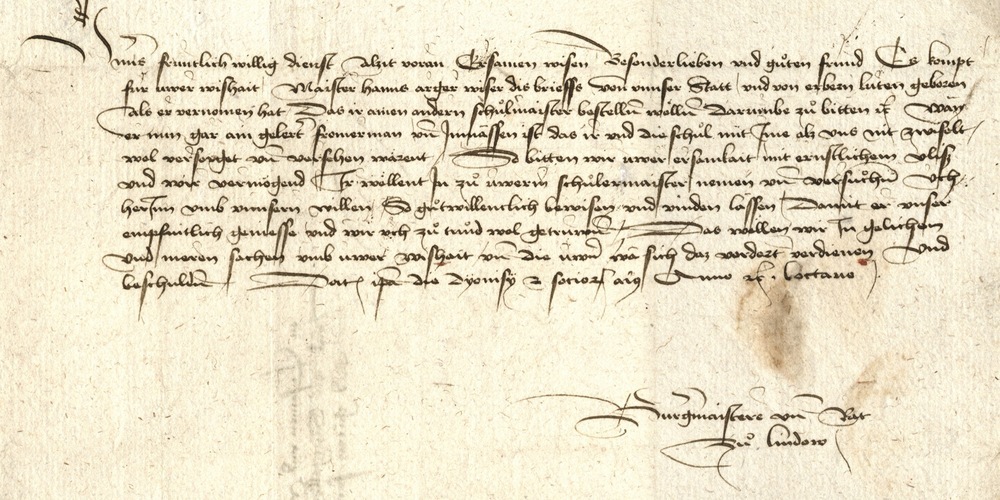 Unns fruntlich willig dienst alzit voran Ersamen wisen Besonderlieben und guͦten frund Es kompt
fur uwer wishait Maister hanns arger wiser dis brieffs von unnser Statt und von erbern luten geboren
als er vernomen hat Das ir ainen andern schuͦlmaister bestellen wollen Darumbe zu bitten Wan
er nun gar ain gelert fromerman und Jnmassen ist das ir und die schuͦl mit Jme als uns nit zwifelt
wol versorget und versehen wärent So bitten wir uwer ersamkait mit ernstlichem vlisz
und wir vermögend Jr wöllent Jn zuͦ uwerm schuͦlermaister nemen und versuͦchen Uch
herJnn umb unnsern willen So guͦtwilleniclich bewisen und vinden lassen Damit er unser
empfintlich geniesse und wir uch zuͦ wol getruwen Das wöllen wir Jn gelichem
und meren sachen umb uwer wishait und die uwern wa sich daz vordert verdienen Und
beschulden Dat ipsa die Dyonisy & socior eius Anno octavo
Burgermaistere und Rat
Zuͦ lindow